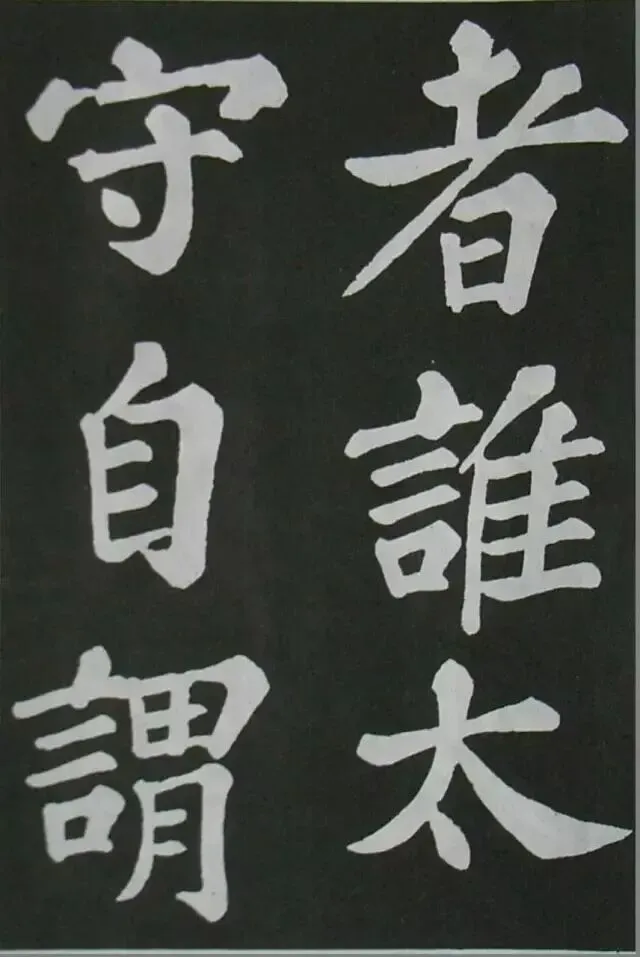 者誰太
守自謂